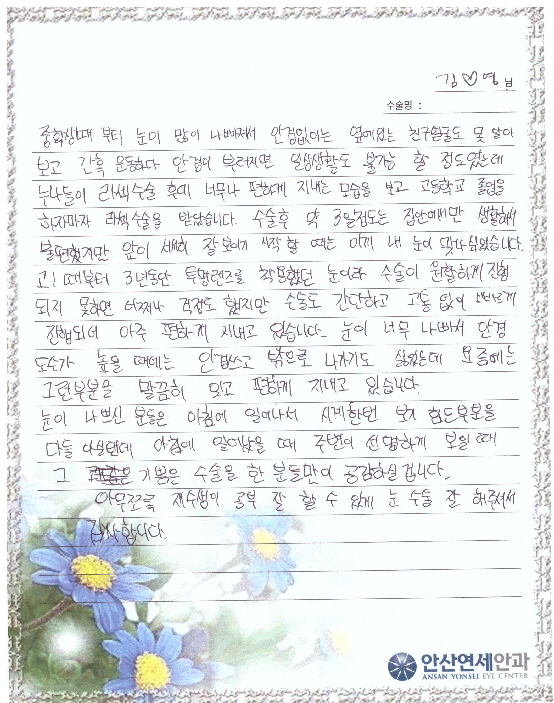 김♡영 님
수술명 :
중학생때 부터 눈이 많이 나빠져서 안경없이는 옆에있는 친구얼굴도 못 알아
보고 간혹 운동하다 안경이 부러지면 일상생활도 불가능 할 정도였는데
누나들이 라섹수술 후에 너무나 편하게 지내는 모습을 보고 고등학교 졸업을
하자마자 라섹수술을 받았습니다. 수술후 약 3일정도는 집안에서만 생활해서
불편했지만 앞이 서서히 잘 보이기 시작 할 때는 이게 내 눈이 맞나싶었습니다.
고1 때부터 3년동안 투명렌즈를 착용했던 눈이라 수술이 원활하게 진행
되지 못하면 어쩌나 걱정도 했지만 수술도 간단하고 고통 없이 빠르게
진행되어 아주 편하게 지내고 있습니다. 눈이 너무 나빠서 안경
도수가 높을 때에는 안경쓰고 밖으로 나가기도 싫었는데 요즘에는
그런부분을 말끔히 잊고 편하게 지내고 있습니다.
눈이 나쁘신 분들은 아침에 일어나서 시계한번 보기 힘든부분을
다들 아실텐데 아침에 일어났을 때 주변이 선명하게 보일 때
그 기쁨은 수술을 한 분들만이 공감하실 겁니다.
아무조록 재수생이 공부 잘 할 수 있게 눈 수술 잘 해주셔서
감사합니다.
안산연세안과
ANSAN YONSEI EYE CENTER